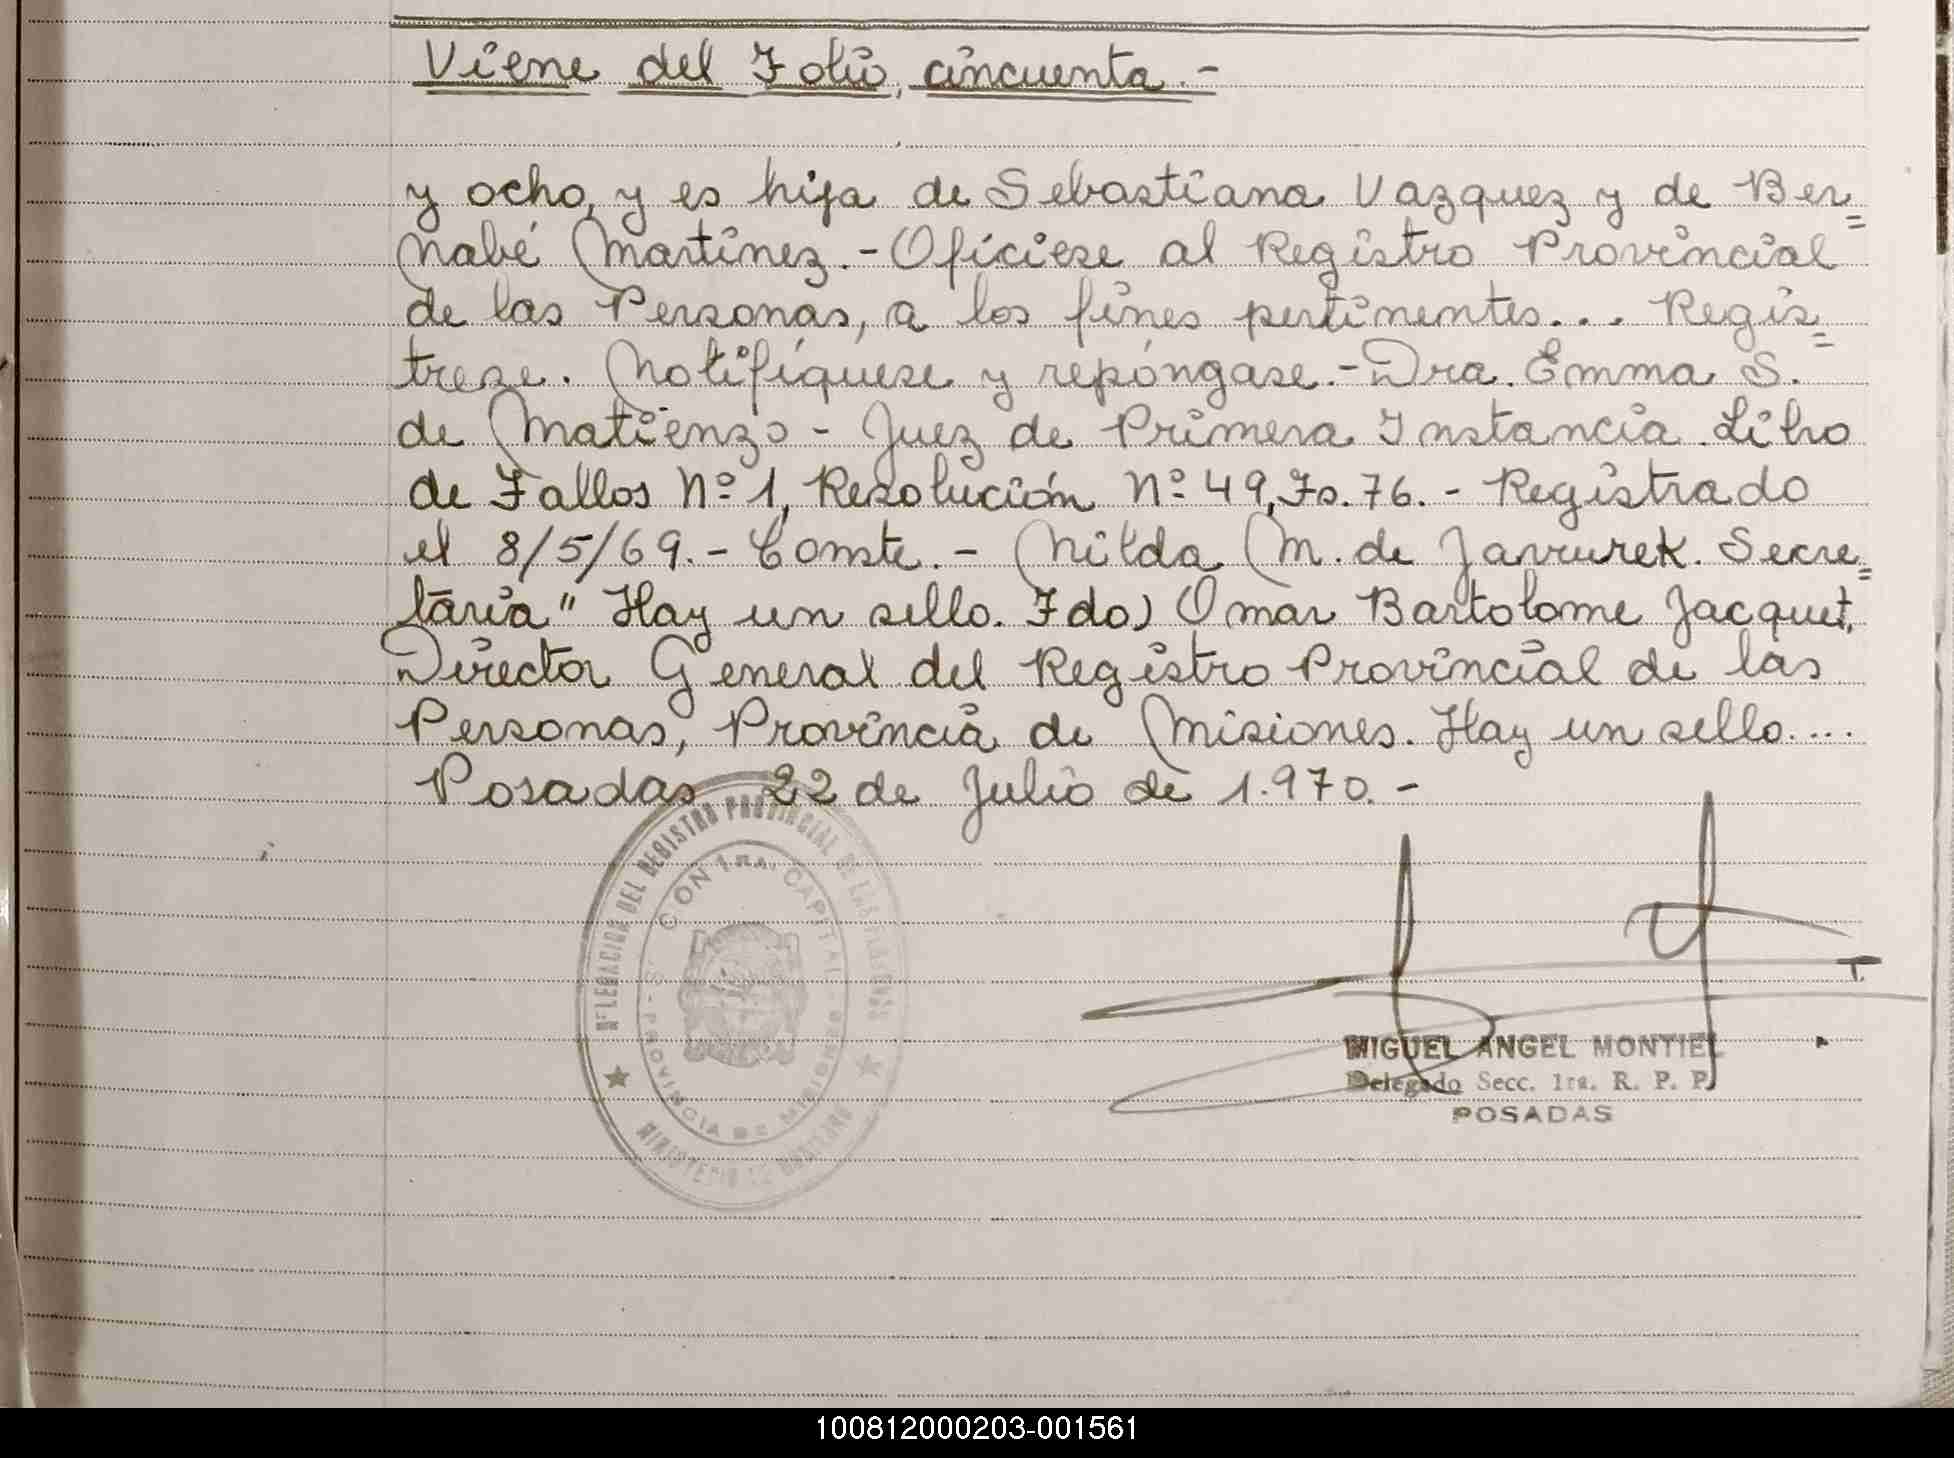 Viene del Folio, cincuenta.-
y ocho, y es hija de Sebastiana Vazquez y de Ber=
nabé Martinez.-Ofíciese al Registro Provincial
de las Personas, a los fines pertinentes... Regis=
trese. Notifíquese y repóngase.-Dra. Emma S.
de Matienzo - Juez de Primera Instancia. Libro
de Fallos Nº 1, Resolución Nº 49, Fs. 76.- Registrado
el 8/5/69.- Conste.- Nilda M. de Javurek. Secre=
taria" Hay un sello. Fdo) Omar Bartolome Jacquet,
Director General del Registro Provincial de las
Personas, Provincia de Misiones. Hay un sello....
Posadas 22 de Julio de 1.970.-
DEL REGISTRO PROVINCIAL DE LAS
CAPITAL
PROVINCIA DE MISIONES
MIGUEL ANGEL MONTIEL
Delegado Secc. 1ra. R. P. P.
POSADAS
100812000203-001561